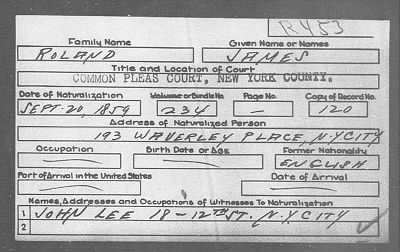 R453
Family Name Given Name or Names
ROLAND JAMES
Title and Location of Court
COMMON PLEAS COURT, NEW YORK COUNTY.
Date of Naturalization Volume or Bundle No. Page No. Copy of Record No.
SEPT. 20, 1859 234 — 120
Address of Naturalized Person
193 WAVERLEY PLACE, N.Y. CITY
Occupation Birth Date or Age Former Nationality
ENGLISH
Port of Arrival in the United States Date of Arrival
Names, Addresses and Occupations of Witnesses To Naturalization
1 JOHN LEE 18 - 12TH ST. N.Y. CITY
2